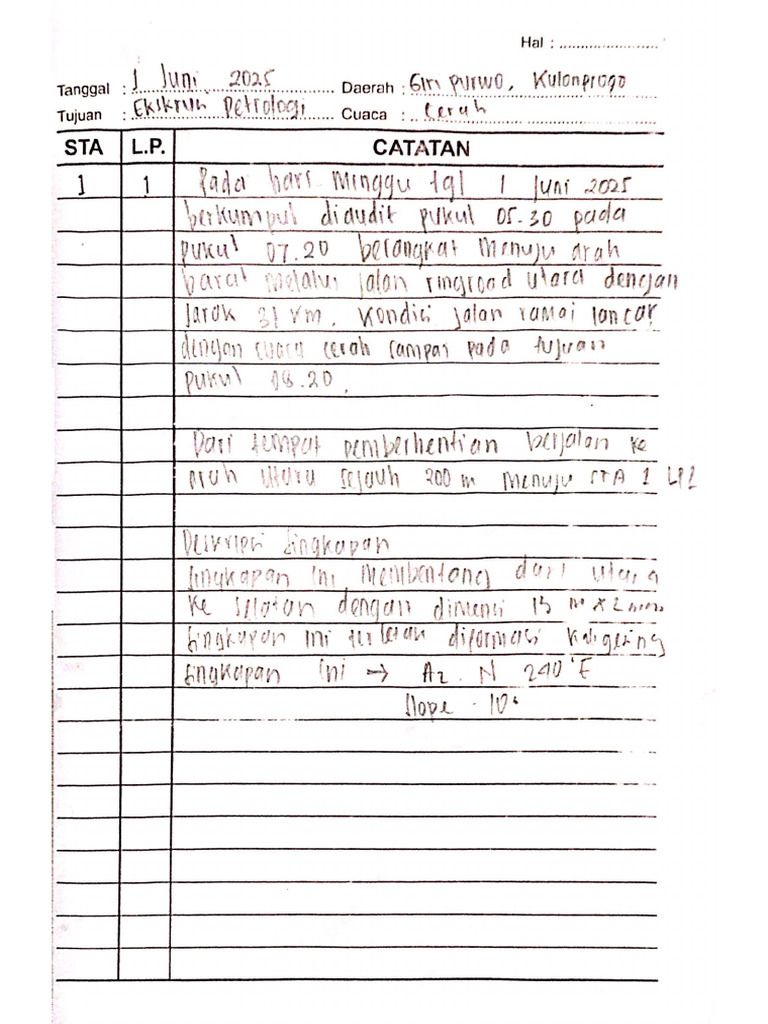 Hal : ........................
Tanggal : 1 Juni 2025 Daerah : Giri purwo, Kulonprogo
Tujuan : Ekskrusi Petrologi Cuaca : Cerah
STA L.P. CATATAN
1 1 Pada hari Minggu tgl 1 Juni 2025
berkumpul diaudit pukul 05.30 pada
pukul 07.20 berangkat menuju arah
barat melalui jalan ringroad utara dengan
jarak 31 km. Kondisi jalan ramai lancar
dengan cuaca cerah sampai pada tujuan
pukul 08.20.
Dari tempat pemberhentian berjalan ke
arah utara sejauh 200 m menuju STA 1 LP1
Deskripsi Singkapan
Singkapan ini membentang dari utara
ke selatan dengan dimensi 15 m x 2
Singkapan ini terletak diformasi
Singkapan ini → Az. N 240°E
Slope = 10°